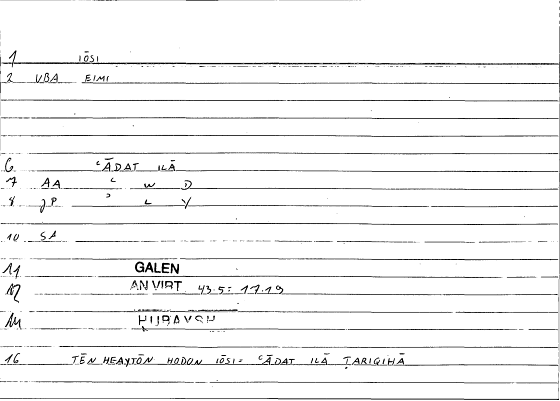 1 IŌSI
2 VBA EIMI
6 ʿĀDAT ILĀ
7 AA ʿ W D
8 JP ʾ L Y
10 SA
11 GALEN
12 AN VIRT 43.5 = 17.19
14 HIJRAVSH
16 TĒN HEAYTŌN HODON IŌSI = ʿĀDAT ILĀ ṬARIQIHĀ